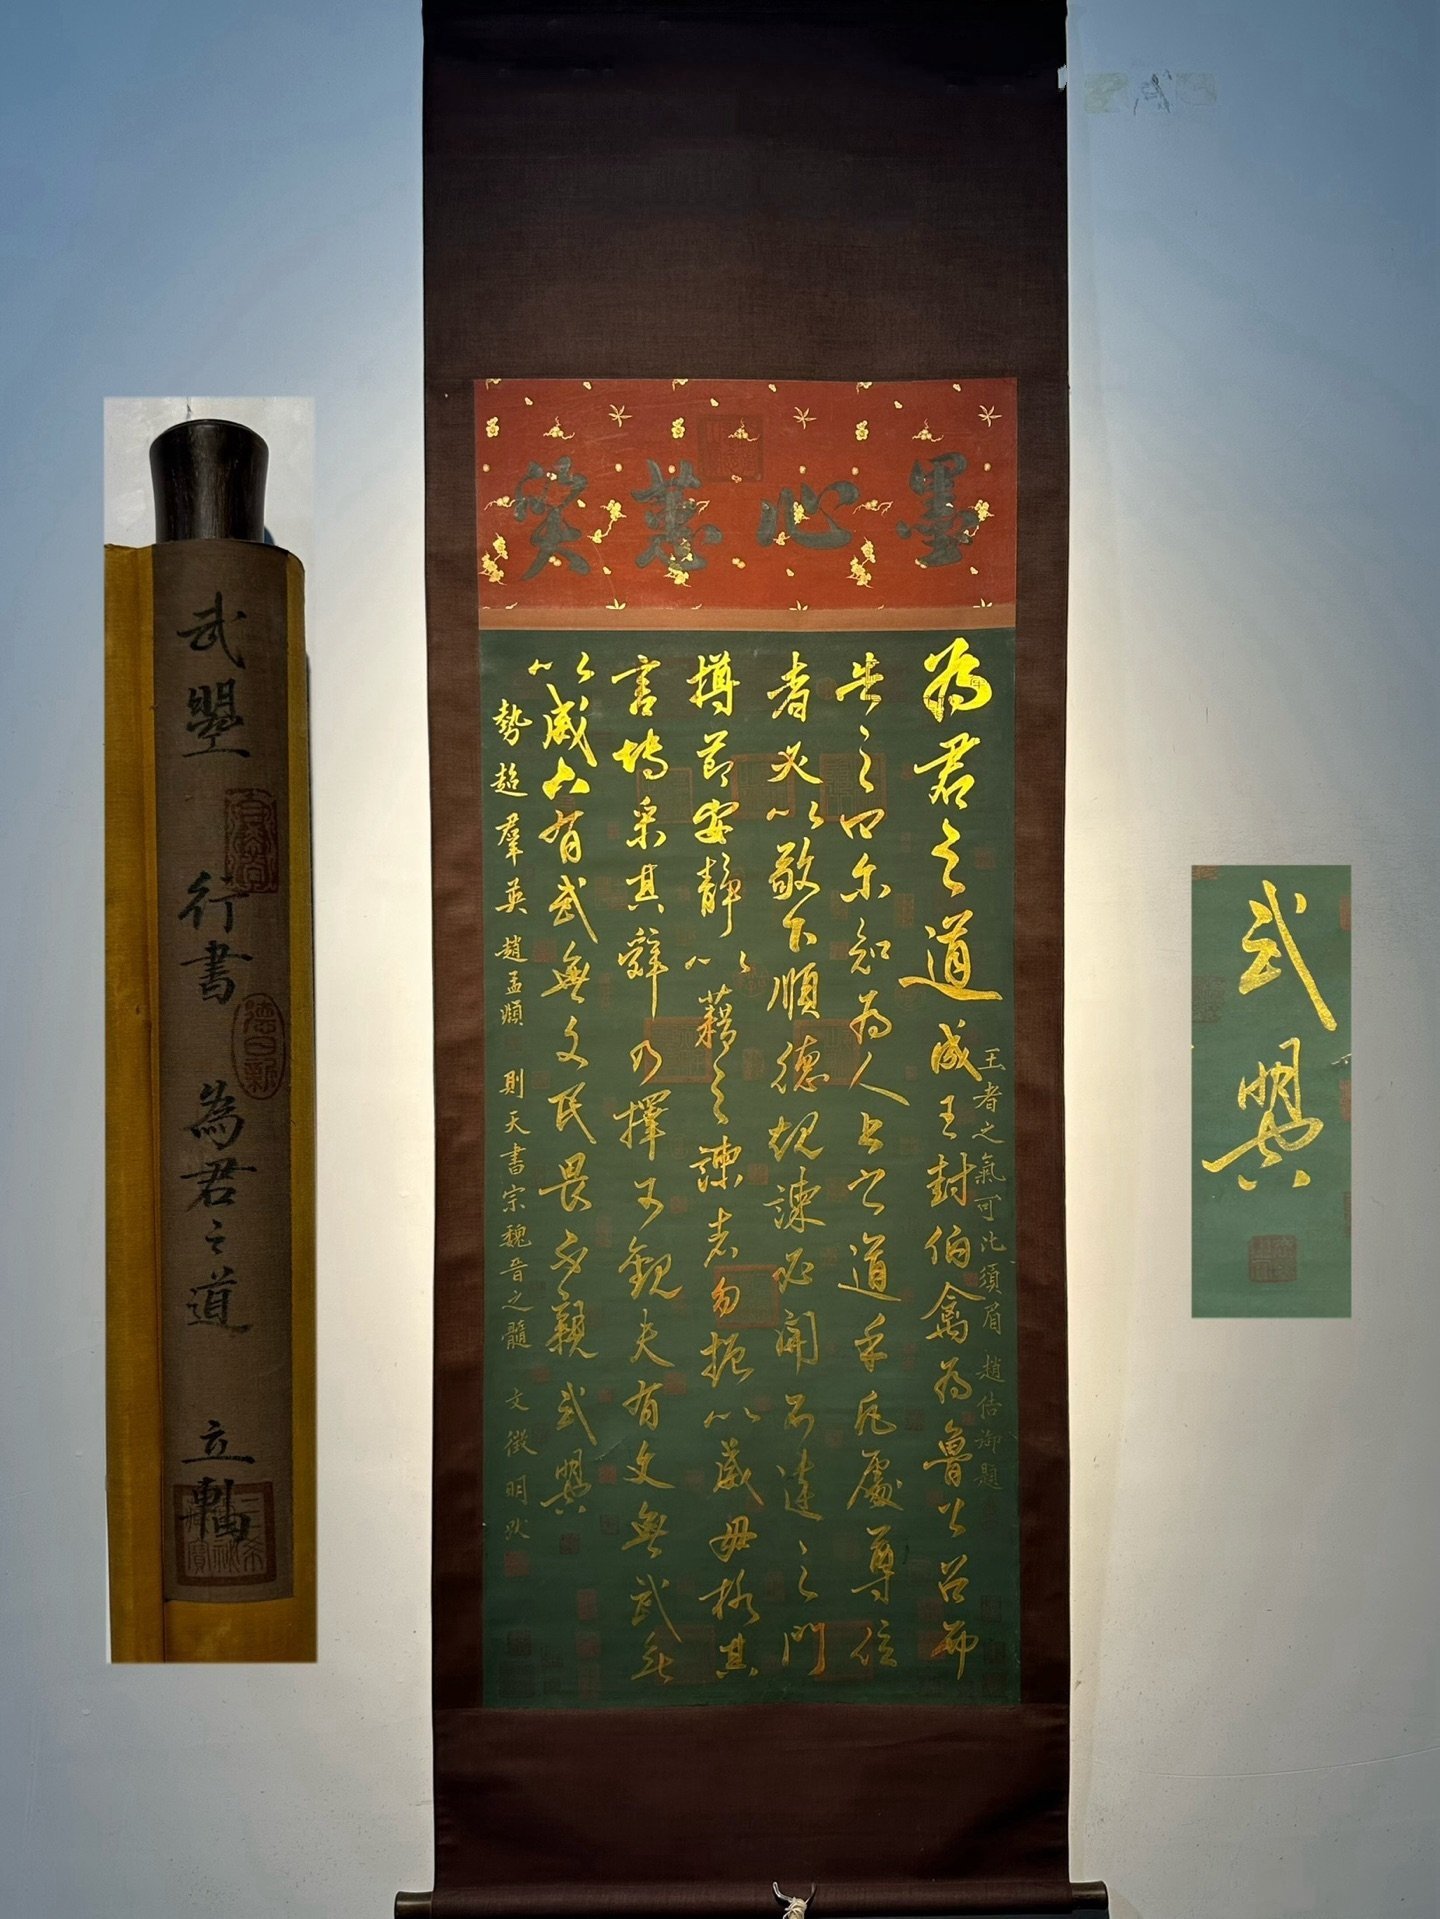 墨心蕙質
為君之道成王封伯禽為魯公召而
告之曰尔知為人上之道乎凡處尊位
者必以敬下順德規諫必開不諱之門
撙節安靜以藉之諫者勿振以威毋格其
言博采其辭乃擇可觀夫有文無武無
以威下有武無文民畏不親 武曌
王者之氣可比須眉 趙佶御題
勢超羣英 趙孟頫
則天書宗魏晉之髓 文徵明跋
武曌 行書 為君之道 立軸
德日新
武曌